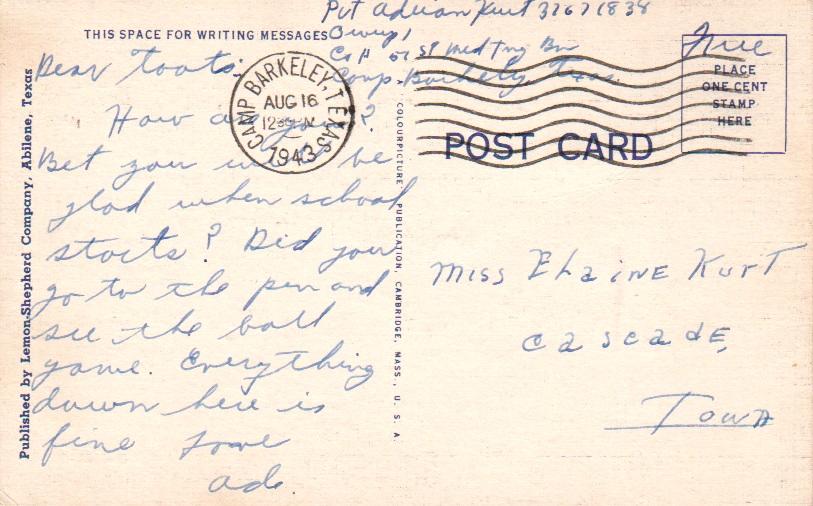 THIS SPACE FOR WRITING MESSAGES
Pvt Adrian Kurt 37671838
Co A 51 St Med Tng Bn
Camp Barkeley, Texas
Free
PLACE
ONE CENT
STAMP
HERE
CAMP BARKELEY, TEXAS
AUG 16
1943
POST CARD
Dear Toots:
How are you?
Bet you will be
glad when school
starts? Did you
go to the pen and
see the ball
game. Everything
down here is
fine
Ade.
Miss Elaine Kurt
Cascade,
Iowa
Published by Lemon-Shepherd Company, Abilene, Texas
COLOURPICTURE PUBLICATION, CAMBRIDGE, MASS., U. S. A.